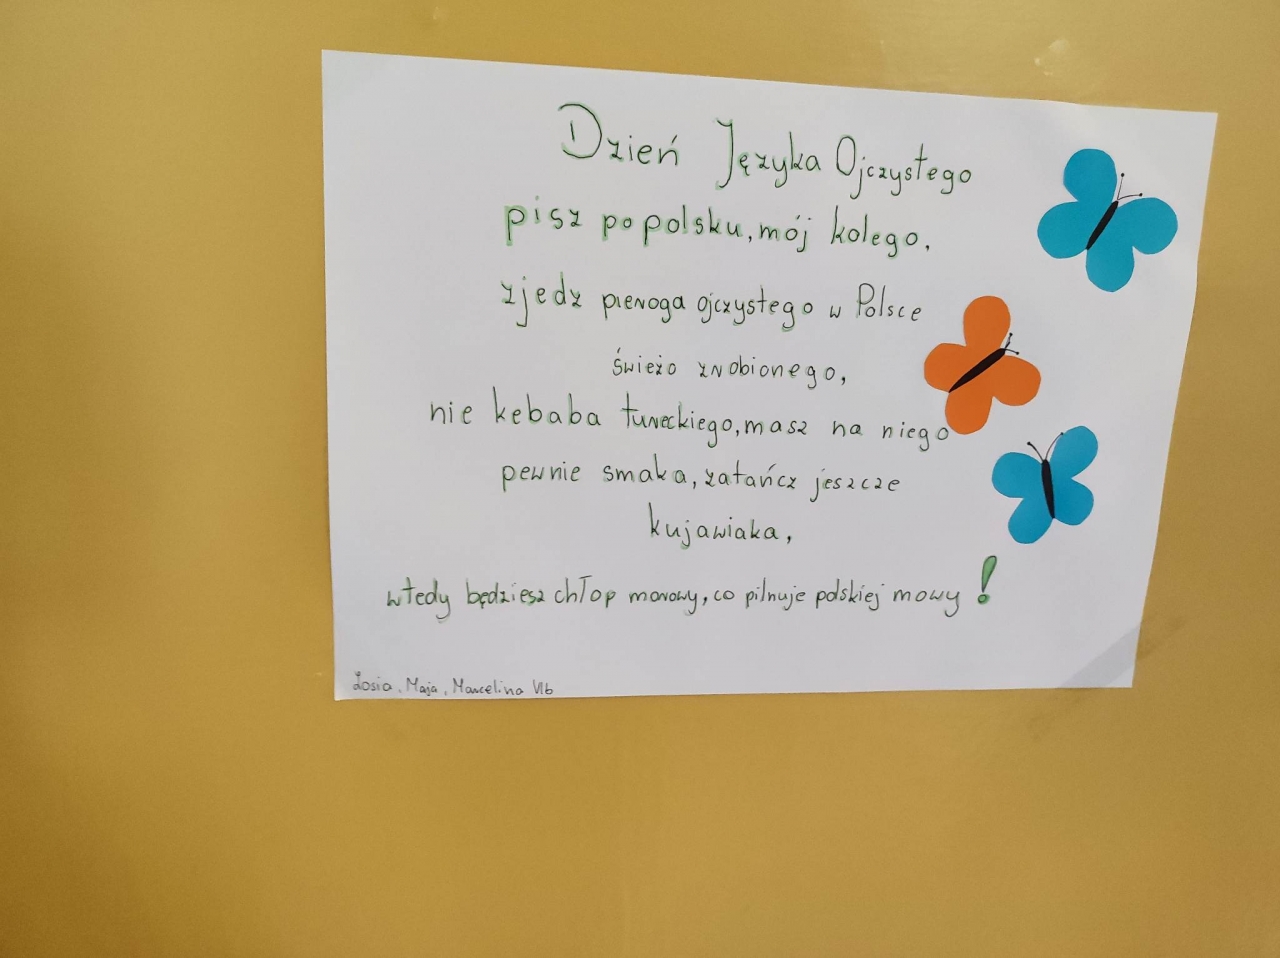 Dzień Języka Ojczystego
pisz po polsku, mój kolego,
zjedz pieroga ojczystego w Polsce
świeżo zrobionego,
nie kebaba tureckiego, masz na niego
pewnie smaka, zatańcz jeszcze
kujawiaka,
wtedy będziesz chłop morowy, co pilnuje polskiej mowy!
Zosia, Maja, Marcelina VIb